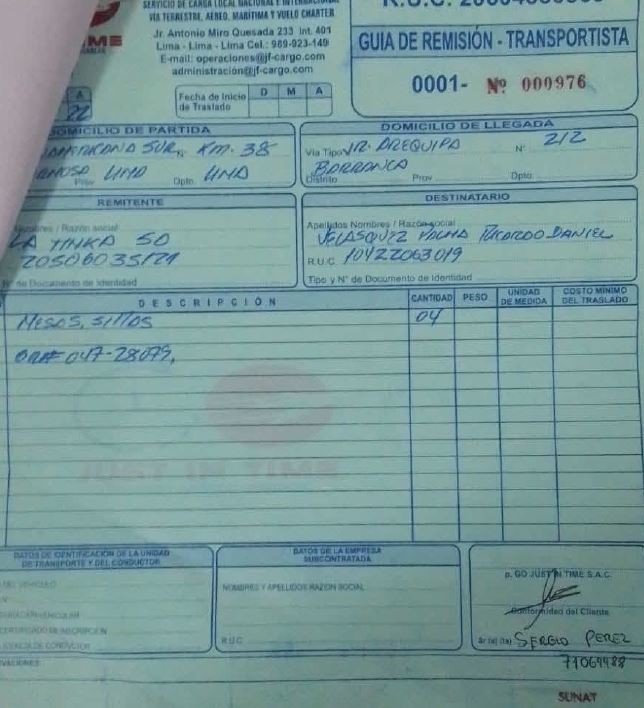 SERVICIO DE CARGA LOCAL NACIONAL E INTERNACIONAL
VIA TERRESTRE, AEREO, MARITIMA Y VUELO CHARTER
TIME
Jr. Antonio Miro Quesada 233 Int. 401
Lima - Lima - Lima Cel.: 989-923-149
E-mail: operaciones@jf-cargo.com
administración@jf-cargo.com
GUIA DE REMISIÓN - TRANSPORTISTA
0001- Nº 000976
A
22
Fecha de Inicio de Traslado
D M A
DOMICILIO DE PARTIDA
SUR Nº KM. 38
Prov LIMA Dpto. LIMA
DOMICILIO DE LLEGADA
Via Tipo JR. AREQUIPA Nº 212
BARRANCA
Distrito Prov Dpto.
REMITENTE
Nombres / Razón social
LA TINKA SA
Nº de Documento de Identidad
DESTINATARIO
Apellidos Nombres / Razón social
VELASQUEZ PALMA RICARDO DANIEL
R.U.C. 10422063019
Tipo y N° de Documento de Identidad
DESCRIPCIÓN
CANTIDAD
PESO
UNIDAD DE MEDIDA
COSTO MINIMO DEL TRASLADO
MESAS, SILLAS 04
047-28079.
JUST IN TIME
DATOS DE IDENTIFICACIÓN DE LA UNIDAD
DE TRANSPORTE Y DEL CONDUCTOR
DATOS DE LA EMPRESA
SUBCONTRATADA
NOMBRES Y APELLIDOS RAZON SOCIAL
R.U.C
p. GO JUST IN TIME S.A.C.
Conformidad del Cliente
Sr (a) (ta) SERGIO PEREZ
71064488
SUNAT